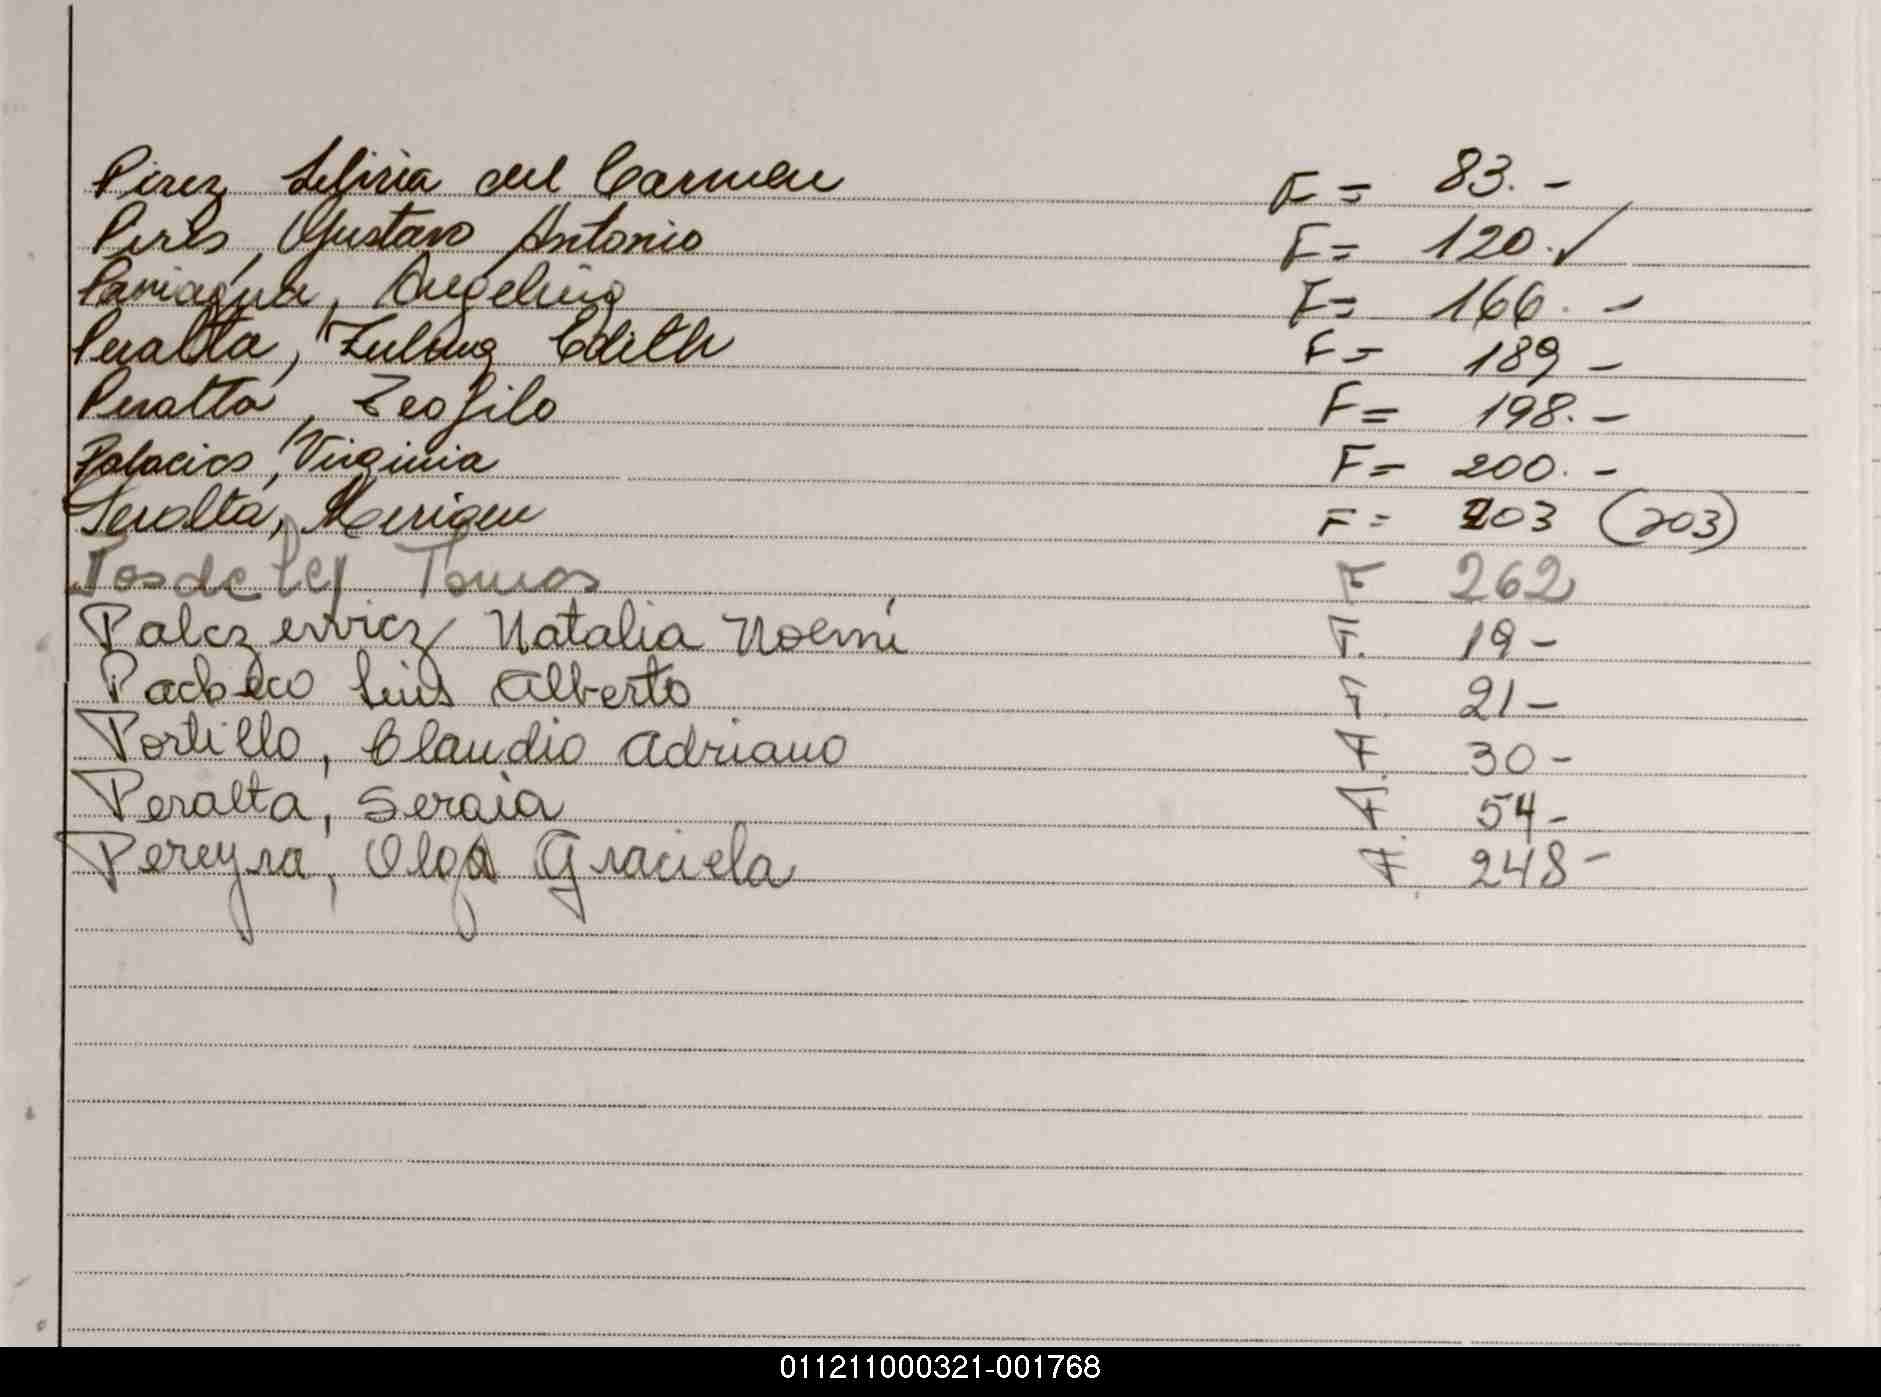 Pérez, del Carmen F = 83. -
Peres, Gustavo Antonio F = 120. ✓
Paniagua, Angelina F = 166. -
Peralta, Zulema Edith F = 189 -
Peralta, Teofilo F = 198. -
Palacios, Virginia F = 200. -
Peralta, F = 203 (203)
Tomas F 262
Palczewicz Natalia Noemí F. 19 -
Pacheco Luis Alberto F. 21 -
Portillo, Claudio Adriano F. 30 -
Peralta, Sergia F 54 -
Pereyra, Olga Graciela F. 248 -
011211000321-001768